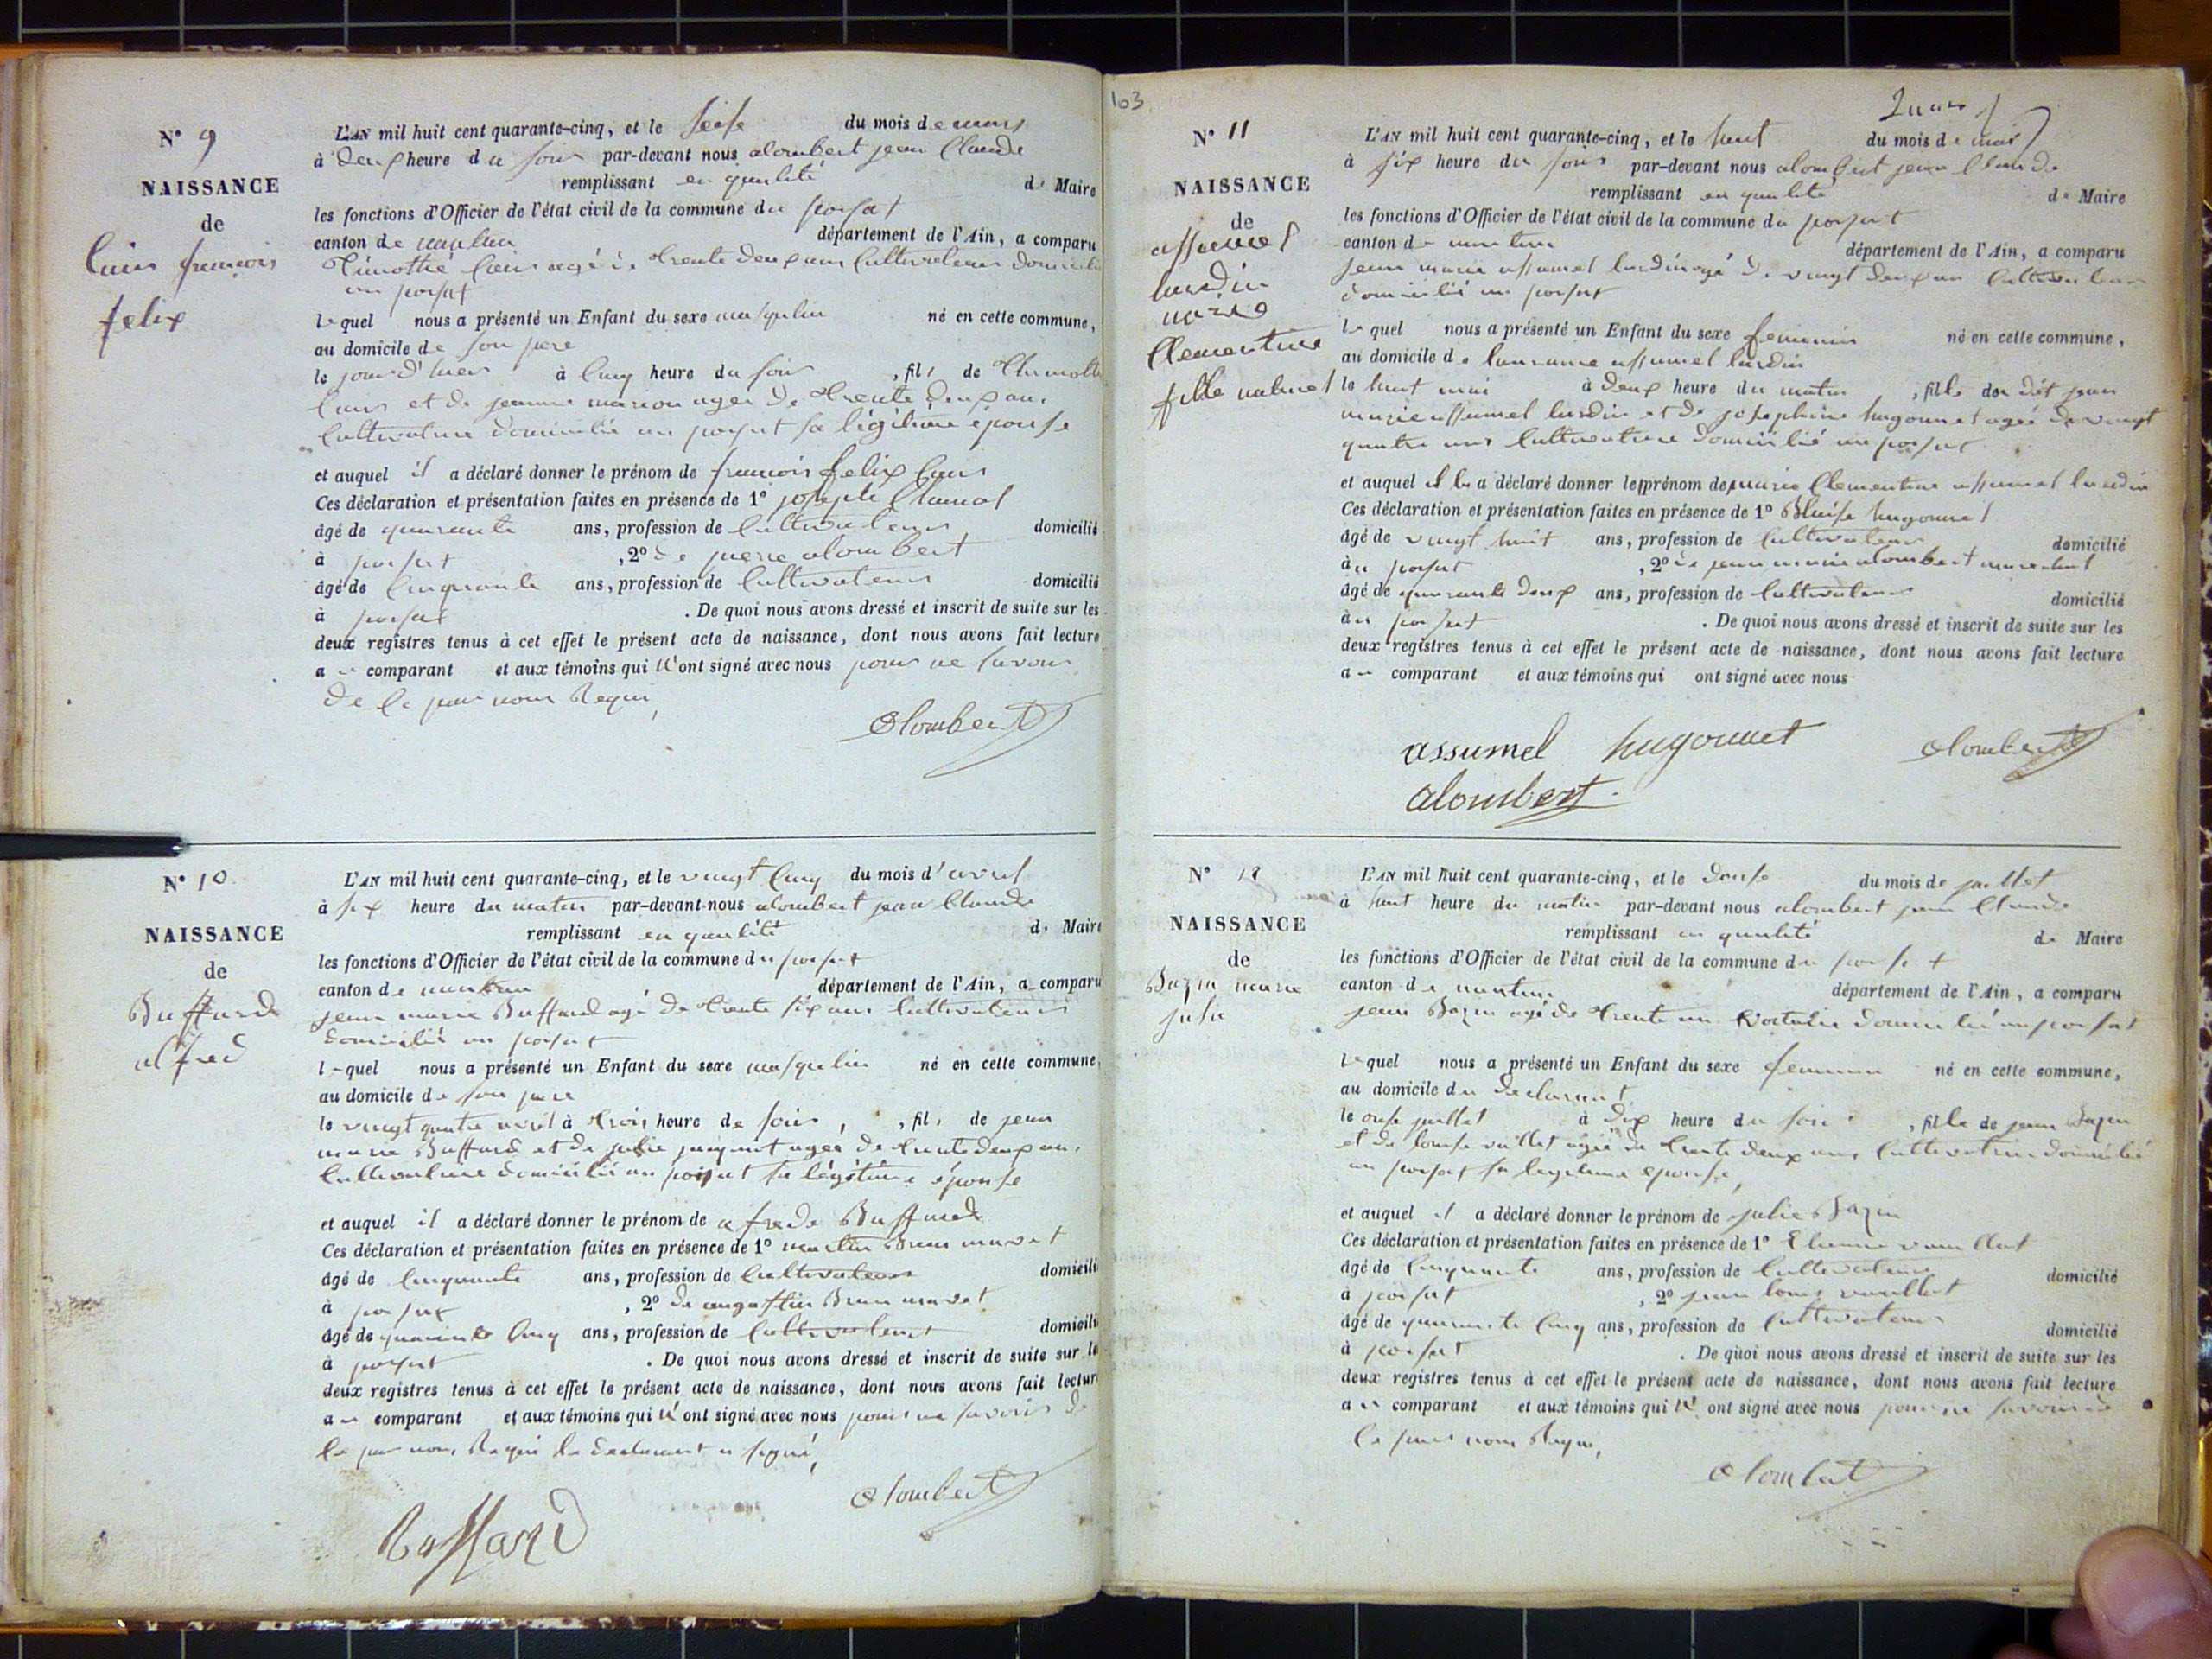 N° 9
NAISSANCE
de
françois
felix
L'AN mil huit cent quarante-cinq, et le seise du mois de mars
à deux heure du soir par-devant nous alombert jean Claude
remplissant en qualité de Maire
les fonctions d'Officier de l'état civil de la commune du poisat
canton de nantua département de l'Ain, a comparu
Timothé agé de trente deux ans Cultivateur domicilié
au poisat
lequel nous a présenté un Enfant du sexe masqulin né en cette commune,
au domicile de son pere
le jour d'hier à Cinq heure du soir, fils de
et de jeanne agee de trente deux ans
Cultivatrice domicilié au poisat sa légitime épouse
et auquel il a déclaré donner le prénom de françois felix
Ces déclaration et présentation faites en présence de 1° joseph
âgé de quarante ans, profession de Cultivateur domicilié
à poisat, 2° de pierre alombert
âgé de Cinquante ans, profession de Cultivateur domicilié
à poisat. De quoi nous avons dressé et inscrit de suite sur les
deux registres tenus à cet effet le présent acte de naissance, dont nous avons fait lecture
au comparant et aux témoins qui n'ont signé avec nous pour ne savoir
de ce par nous Requi
alombert
N° 10
NAISSANCE
de
Buffard
alfred
L'AN mil huit cent quarante-cinq, et le vingt Cinq du mois d'avril
à six heure du matin par-devant nous alombert jean Claude
remplissant en qualité de Maire
les fonctions d'Officier de l'état civil de la commune du poisat
canton de nantua département de l'Ain, a comparu
jean marie Buffard agé de trente six ans Cultivateur
domicilié au poisat
lequel nous a présenté un Enfant du sexe masqulin né en cette commune,
au domicile de son pere
le vingt quatre avril à trois heure de soir, fils de jean
marie Buffard et de julie agee de trente deux ans
Cultivatrice domicilié au poisat sa légitime épouse
et auquel il a déclaré donner le prénom de Buffard
Ces déclaration et présentation faites en présence de 1° martin Brun
âgé de Cinquante ans, profession de Cultivateur domicilié
à poisat, 2° de augustin Brun
âgé de quarante Cinq ans, profession de Cultivateur domicilié
à poisat. De quoi nous avons dressé et inscrit de suite sur les
deux registres tenus à cet effet le présent acte de naissance, dont nous avons fait lecture
au comparant et aux témoins qui n'ont signé avec nous pour ne savoir de
ce par nous Requi le declarant a signé,
alombert
Buffard
103
N° 11
NAISSANCE
de
assumel
lurdin
marie
Clementine
fille naturel
L'AN mil huit cent quarante-cinq, et le huit du mois de mai
à six heure du soir par-devant nous alombert jean Claude
remplissant en qualité de Maire
les fonctions d'Officier de l'état civil de la commune du poisat
canton de nantua département de l'Ain, a comparu
jean marie assumel lurdin agé de vingt deux an Cultivateur
domicilié au poisat
lequel nous a présenté un Enfant du sexe feminin né en cette commune,
au domicile de assumel lurdin
le huit mai à deux heure du matin, fille du dit jean
marie assumel lurdin et de josephine hugonnet agée de vingt
quatre ans Cultivatrice domicilié au poisat
et auquel a déclaré donner le prénom de marie Clementine assumel lurdin
Ces déclaration et présentation faites en présence de 1° Blaise hugonnet
âgé de vingt huit ans, profession de Cultivateur domicilié
au poisat, 2° de jean marie alombert
âgé de quarante deux ans, profession de Cultivateur domicilié
au poisat. De quoi nous avons dressé et inscrit de suite sur les
deux registres tenus à cet effet le présent acte de naissance, dont nous avons fait lecture
au comparant et aux témoins qui ont signé avec nous
assumel hugonnet alombert
alombert
N° 12
NAISSANCE
de
Bazin marie
julie
L'AN mil huit cent quarante-cinq, et le douse du mois de juillet
à huit heure du matin par-devant nous alombert jean Claude
remplissant en qualité de Maire
les fonctions d'Officier de l'état civil de la commune du poisat
canton de nantua département de l'Ain, a comparu
jean Bazin agé de trente un domicilié au poisat
lequel nous a présenté un Enfant du sexe feminin né en cette commune,
au domicile du declarant
le onse juillet à dix heure du soir, fille de jean Bazin
et de louise vuillet agée de trente deux ans Cultivatrice domicilié
au poisat sa legitime epouse,
et auquel il a déclaré donner le prénom de julie Bazin
Ces déclaration et présentation faites en présence de 1° Etienne
âgé de Cinquante ans, profession de Cultivateur domicilié
à poisat, 2° jean louis
âgé de quarante Cinq ans, profession de Cultivateur domicilié
à poisat. De quoi nous avons dressé et inscrit de suite sur les
deux registres tenus à cet effet le présent acte de naissance, dont nous avons fait lecture
au comparant et aux témoins qui n' ont signé avec nous pour ne savoir de
ce par nous Requi,
alombert